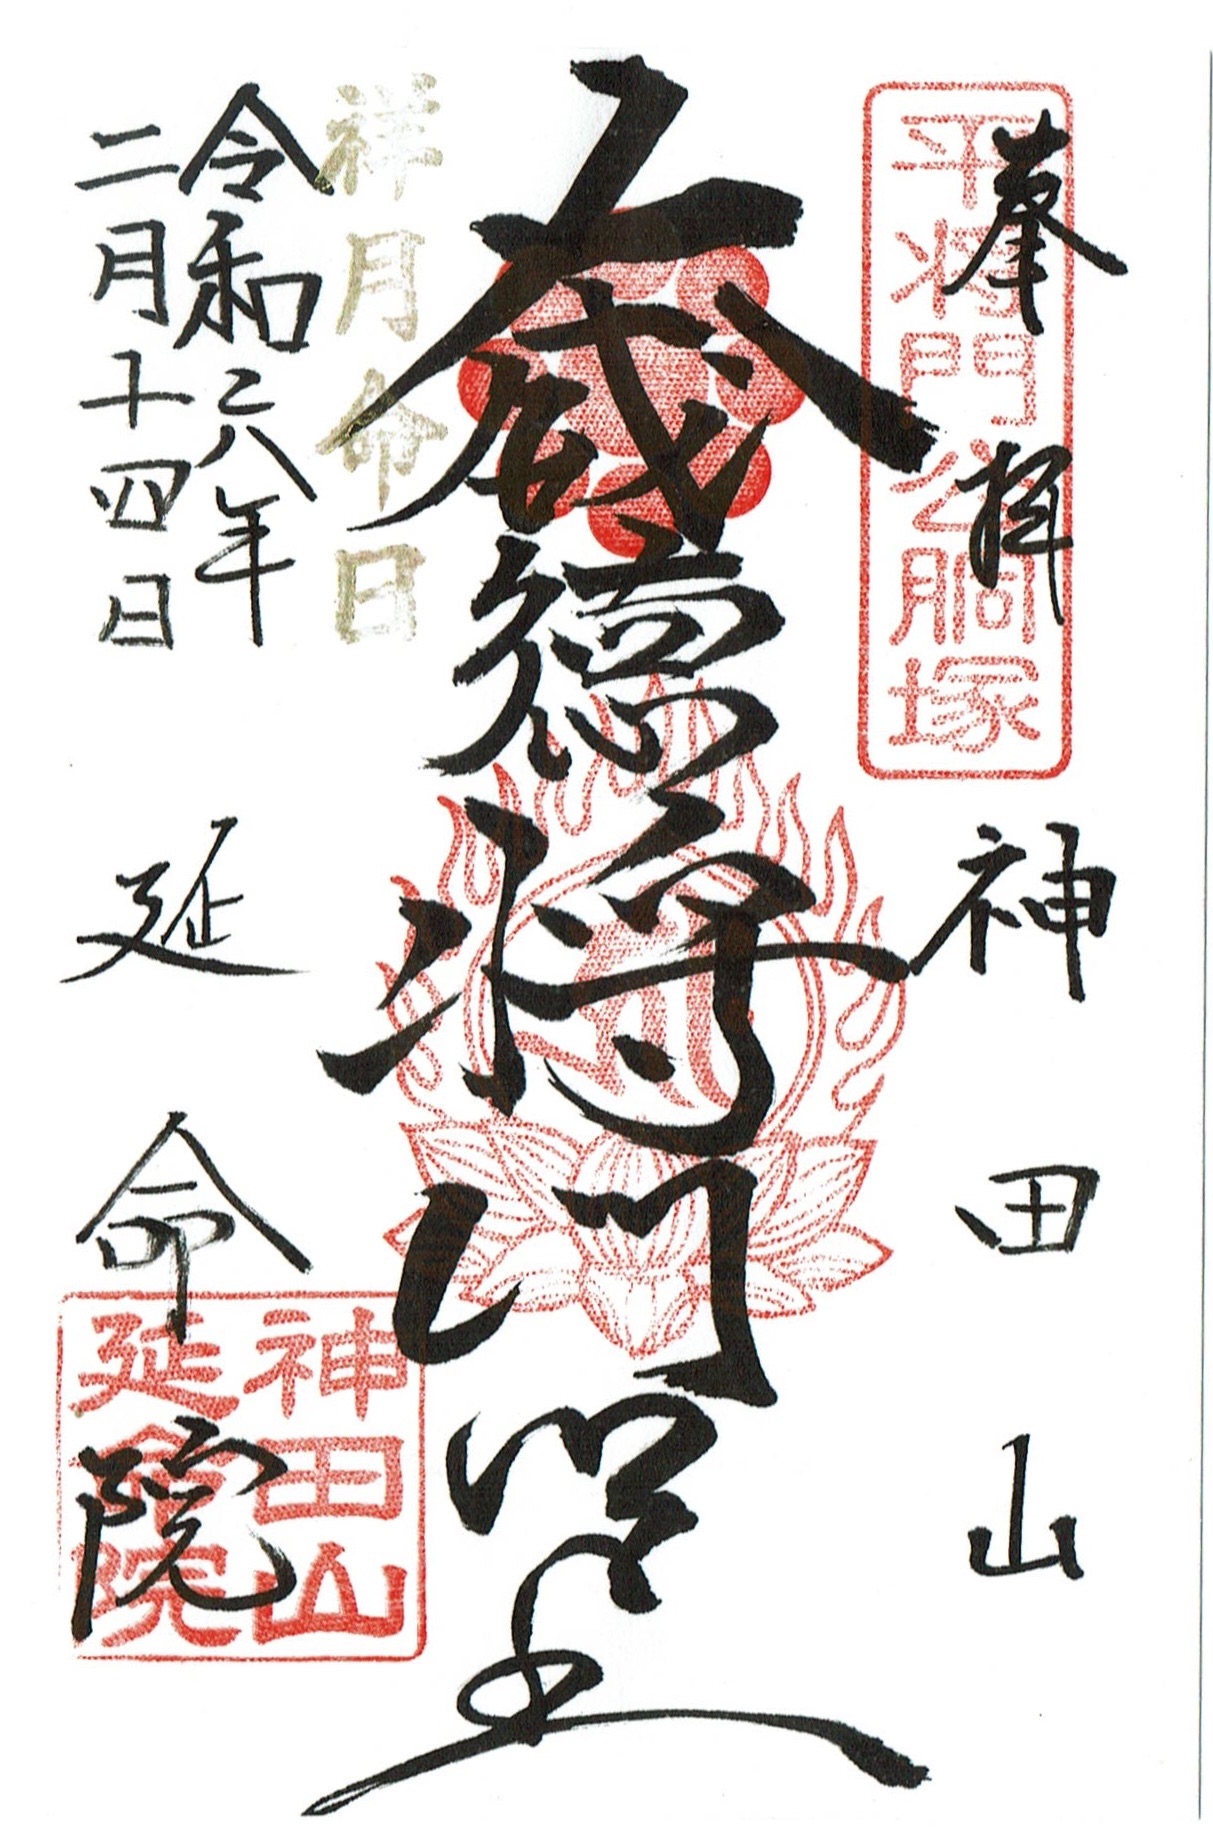 奉拝
平将門公胴塚
神田山
大威徳将門明王
祥月命日
令和六年
二月十四日
延命院
神田山
延命院